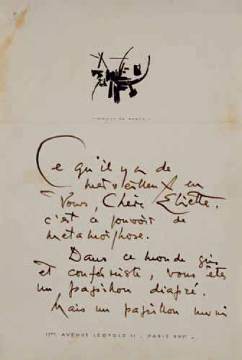 Ce qu'il y a de
merveilleux en
Vous, Chère Eliette,
c'est ce pouvoir de
métamorphose.
Dans ce monde gris
et conformiste, vous êtes
un papillon diapré.
Mais un papillon muni
AVENUE LÉOPOLD II - PARIS XVIe